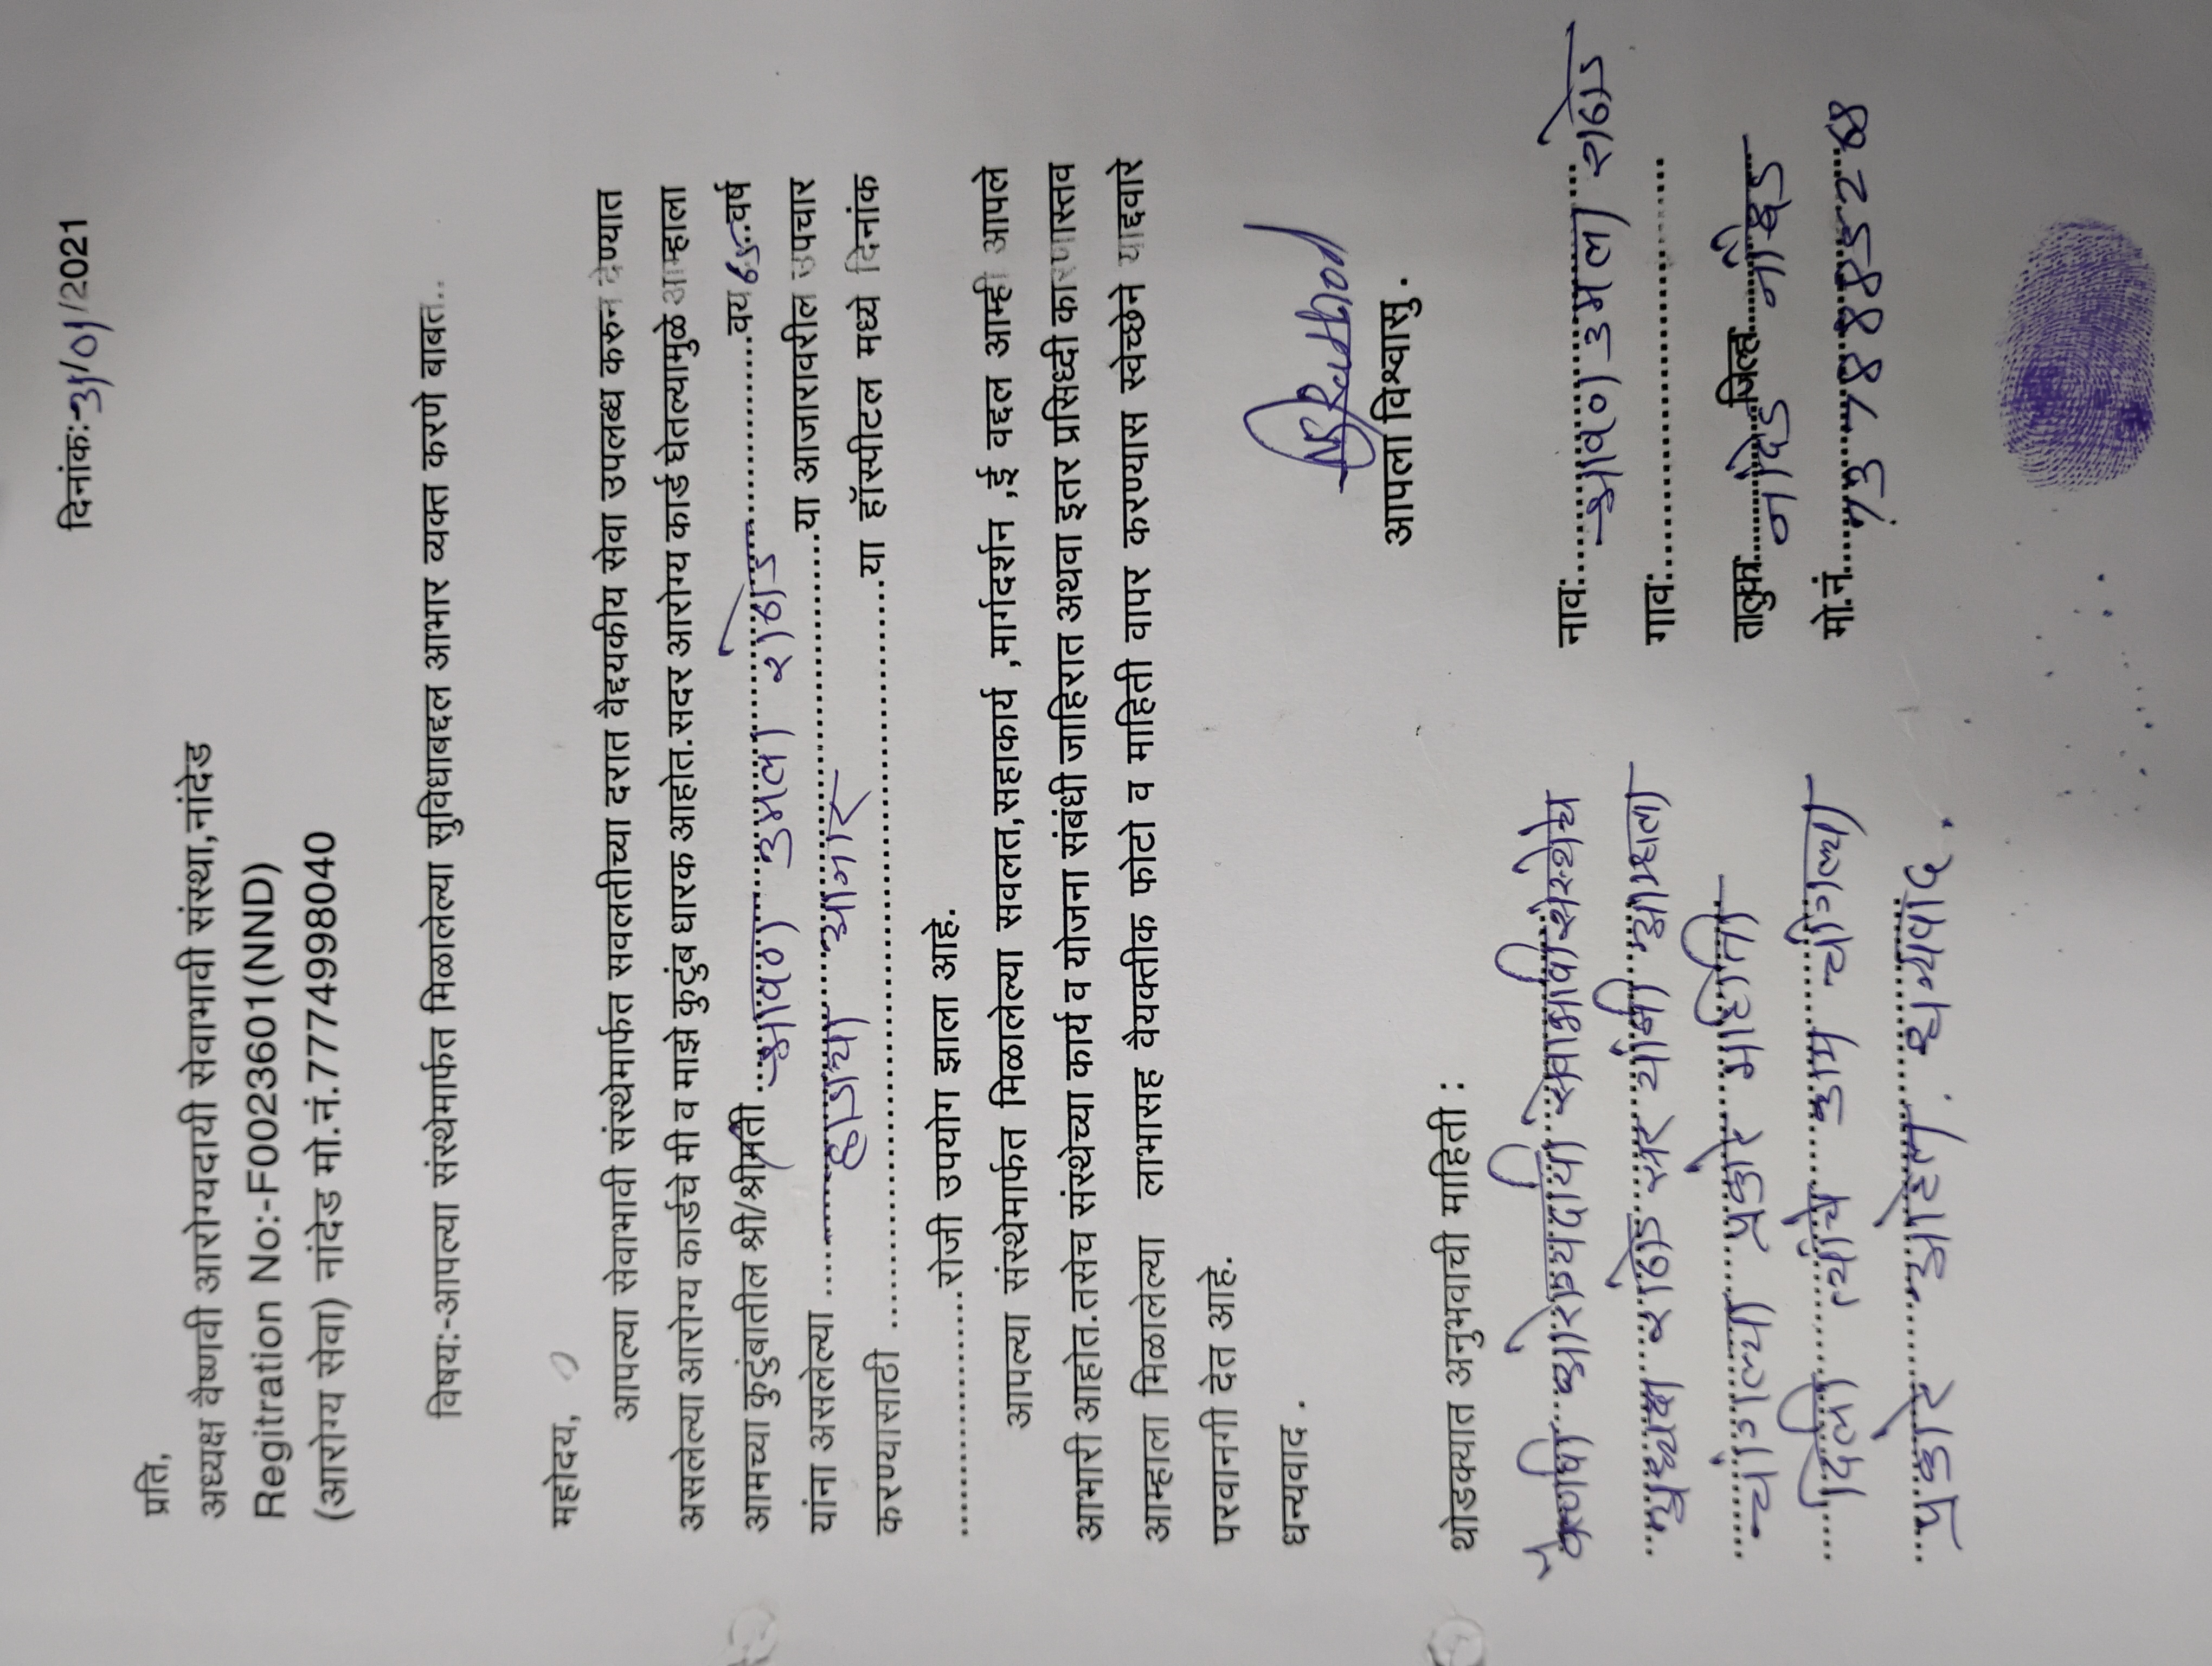 दिनांक:-31/01/2021
प्रति,
अध्यक्ष वैष्णवी आरोग्यदायी सेवाभावी संस्था,नांदेड
Regitration No:-F0023601(NND)
(आरोग्य सेवा) नांदेड मो.नं.7774998040
विषय:-आपल्या संस्थेमार्फत मिळालेल्या सुविधाबद्दल आभार व्यक्त करणे बाबत..
महोदय,
आपल्या सेवाभावी संस्थेमार्फत सवलतीच्या दरात वैद्यकीय सेवा उपलब्ध करून देण्यात
असलेल्या आरोग्य कार्डचे मी व माझे कुटुंब धारक आहोत.सदर आरोग्य कार्ड घेतल्यामुळे आम्हाला
आमच्या कुटुंबातील श्री/श्रीमती ....श्रावण उमला राठोड............वय 65..वर्ष
यांना असलेल्या ..........हाडाचा आजार..........या आजारावरील उपचार
करण्यासाठी ....................या हॉस्पीटल मध्ये दिनांक
..................रोजी उपयोग झाला आहे.
आपल्या संस्थेमार्फत मिळालेल्या सवलत,सहाकार्य ,मार्गदर्शन ,ई बद्दल आम्ही आपले
आभारी आहोत.तसेच संस्थेच्या कार्य व योजना संबंधी जाहिरात अथवा इतर प्रसिध्दी कारणास्तव
आम्हाला मिळालेल्या लाभासह वैयक्तीक फोटो व माहिती वापर करण्यास स्वेच्छेने याद्दवारे
परवानगी देत आहे.
धन्यवाद .
NSRathod
आपला विश्वासु .
थोडक्यात अनुभवाची माहिती :
वैष्णवी आरोग्यदायी सेवाभावी संस्थेचे
राठोड सर यांनी आम्हाला
चांगल्या प्रकारे माहिती
दिली त्यांचे काम चांगल्या
प्रकारे आहेत. धन्यवाद.
नाव:....श्रावण उमला राठोड
गाव:....................
तालुका......नांदेड जिल्हा......नांदेड
मो.नं.......7378885288